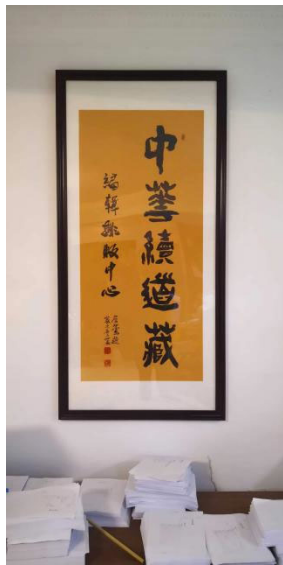 中華續道藏
編輯出版中心